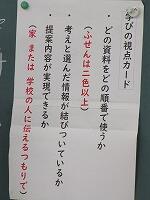 学びの視点カード
・どの資料をどの順番で使うか
（ふせんは二色以上）
・考えと選んだ情報が結びついているか
・提案内容が実現できるか
（家 または 学校の人に伝えるつもりで）